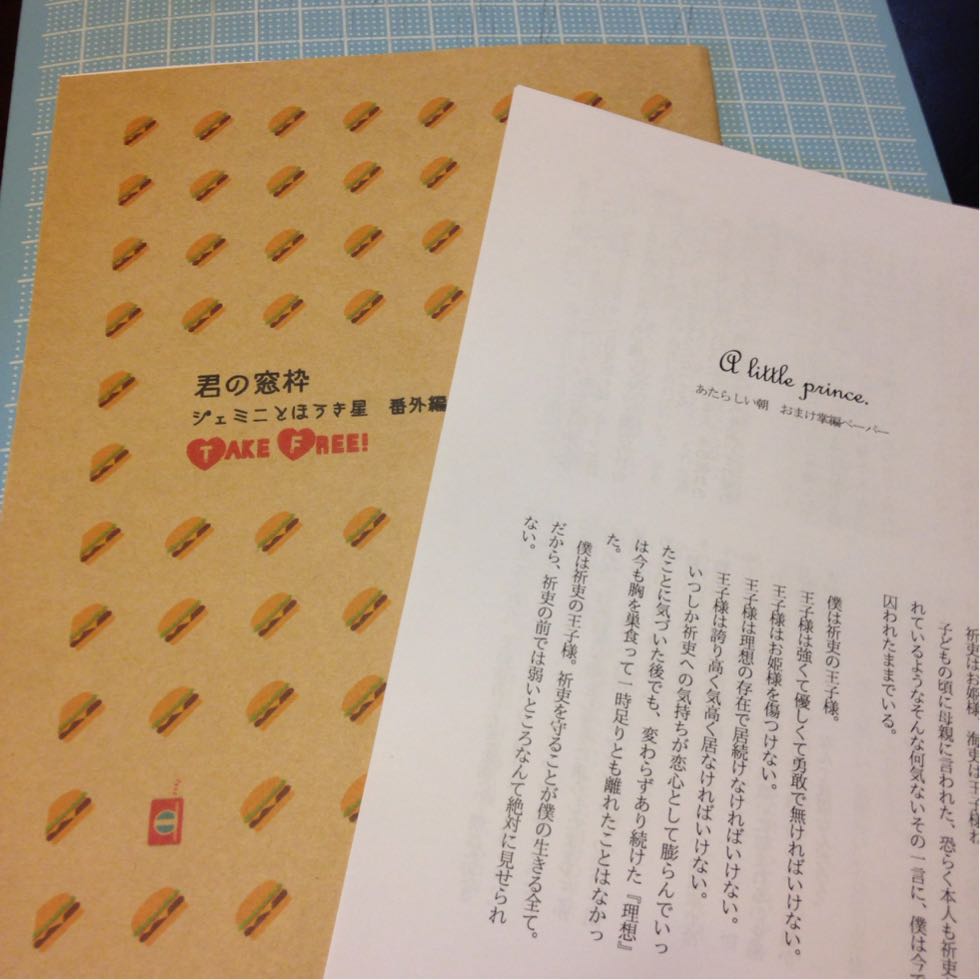 君の窓枠
ジェミニとほうき星 番外編
TAKE FREE!
A little prince.
あたらしい朝 おまけ掌編ペーパー
祈吏はお姫様、海吏は王子様ね
子どもの頃に母親に言われた、恐らく本人も祈吏
れているようなそんな何気ないその一言に、僕は今で
囚われたままでいる。
僕は祈吏の王子様。
王子様は強くて優しくて勇敢で無ければいけない。
王子様はお姫様を傷つけない。
王子様は理想の存在で居続けなければいけない。
王子様は誇り高く気高く居なければいけない。
いつしか祈吏への気持ちが恋心として膨らんでいっ
たことに気づいた後でも、変わらずあり続けた『理想』
は今も胸を巣食って一時足りとも離れたことはなかっ
た。
僕は祈吏の王子様。祈吏を守ることが僕の生きる全て。
だから、祈吏の前では弱いところなんて絶対に見せられ
ない。